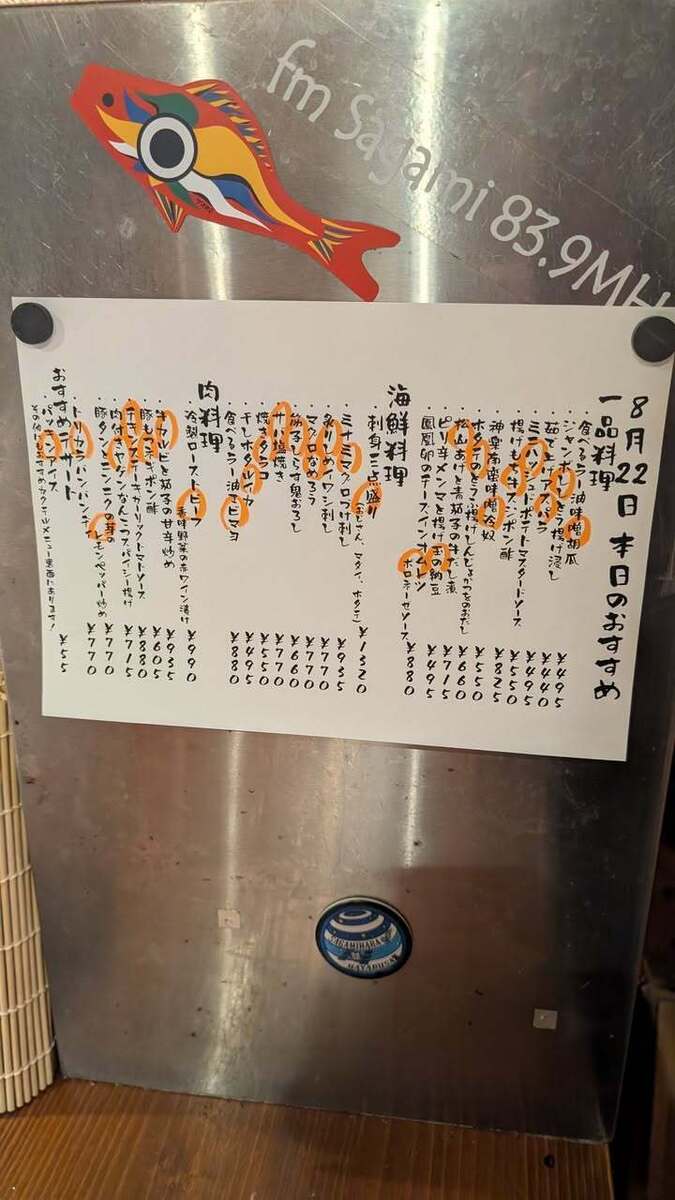 fm Sagami 83.9MH
8月22日 本日のおすすめ
一品料理
・食べるラー油味噌胡瓜 ¥495
・ジャンボ とうふ揚げ浸し ¥440
・茹で上げアスパラ ¥495
・ミニハッシュドポテトマスタードソース ¥550
・揚げもち牛スジポン酢 ¥825
・神楽南蛮味噌冷奴 ¥550
・ホタテの ¥660
・松山あげと青茄子の牛だし煮 ¥715
・ピリ辛メンマと揚げ玉の納豆 ¥495
・鳳凰卵のチーズインオムレツ ¥880
ホロネーゼソース
海鮮料理
・刺身三点盛り ¥1320
・ミナミマグロづけ刺し ¥935
・炙りしめイワシ刺し ¥770
・マグロなめろう ¥770
・茄子しらす鬼おろし ¥660
・サバ塩焼き ¥770
・焼きタラコ ¥550
・干しホタルイカ ¥495
・食べるラー油エビマヨ ¥880
肉料理
・冷製ローストビーフ ¥990
香味野菜の赤ワイン漬け
・牛カルビと茄子の甘辛炒め ¥935
・豚もつネギポン酢 ¥605
・チキンステーキガーリックトマトソース ¥880
・肉付きヤゲンなんこつスパイシー揚げ ¥715
・豚タンとニンニクの芽の ¥770
レモンペッパー炒め
・トリカラバンバンチー ¥770
おすすめデザート
・パッションアイス ¥55
その他にもおすすめカクテルメニュー裏面にあります!
SAGAMIHARA
HAYABUSA